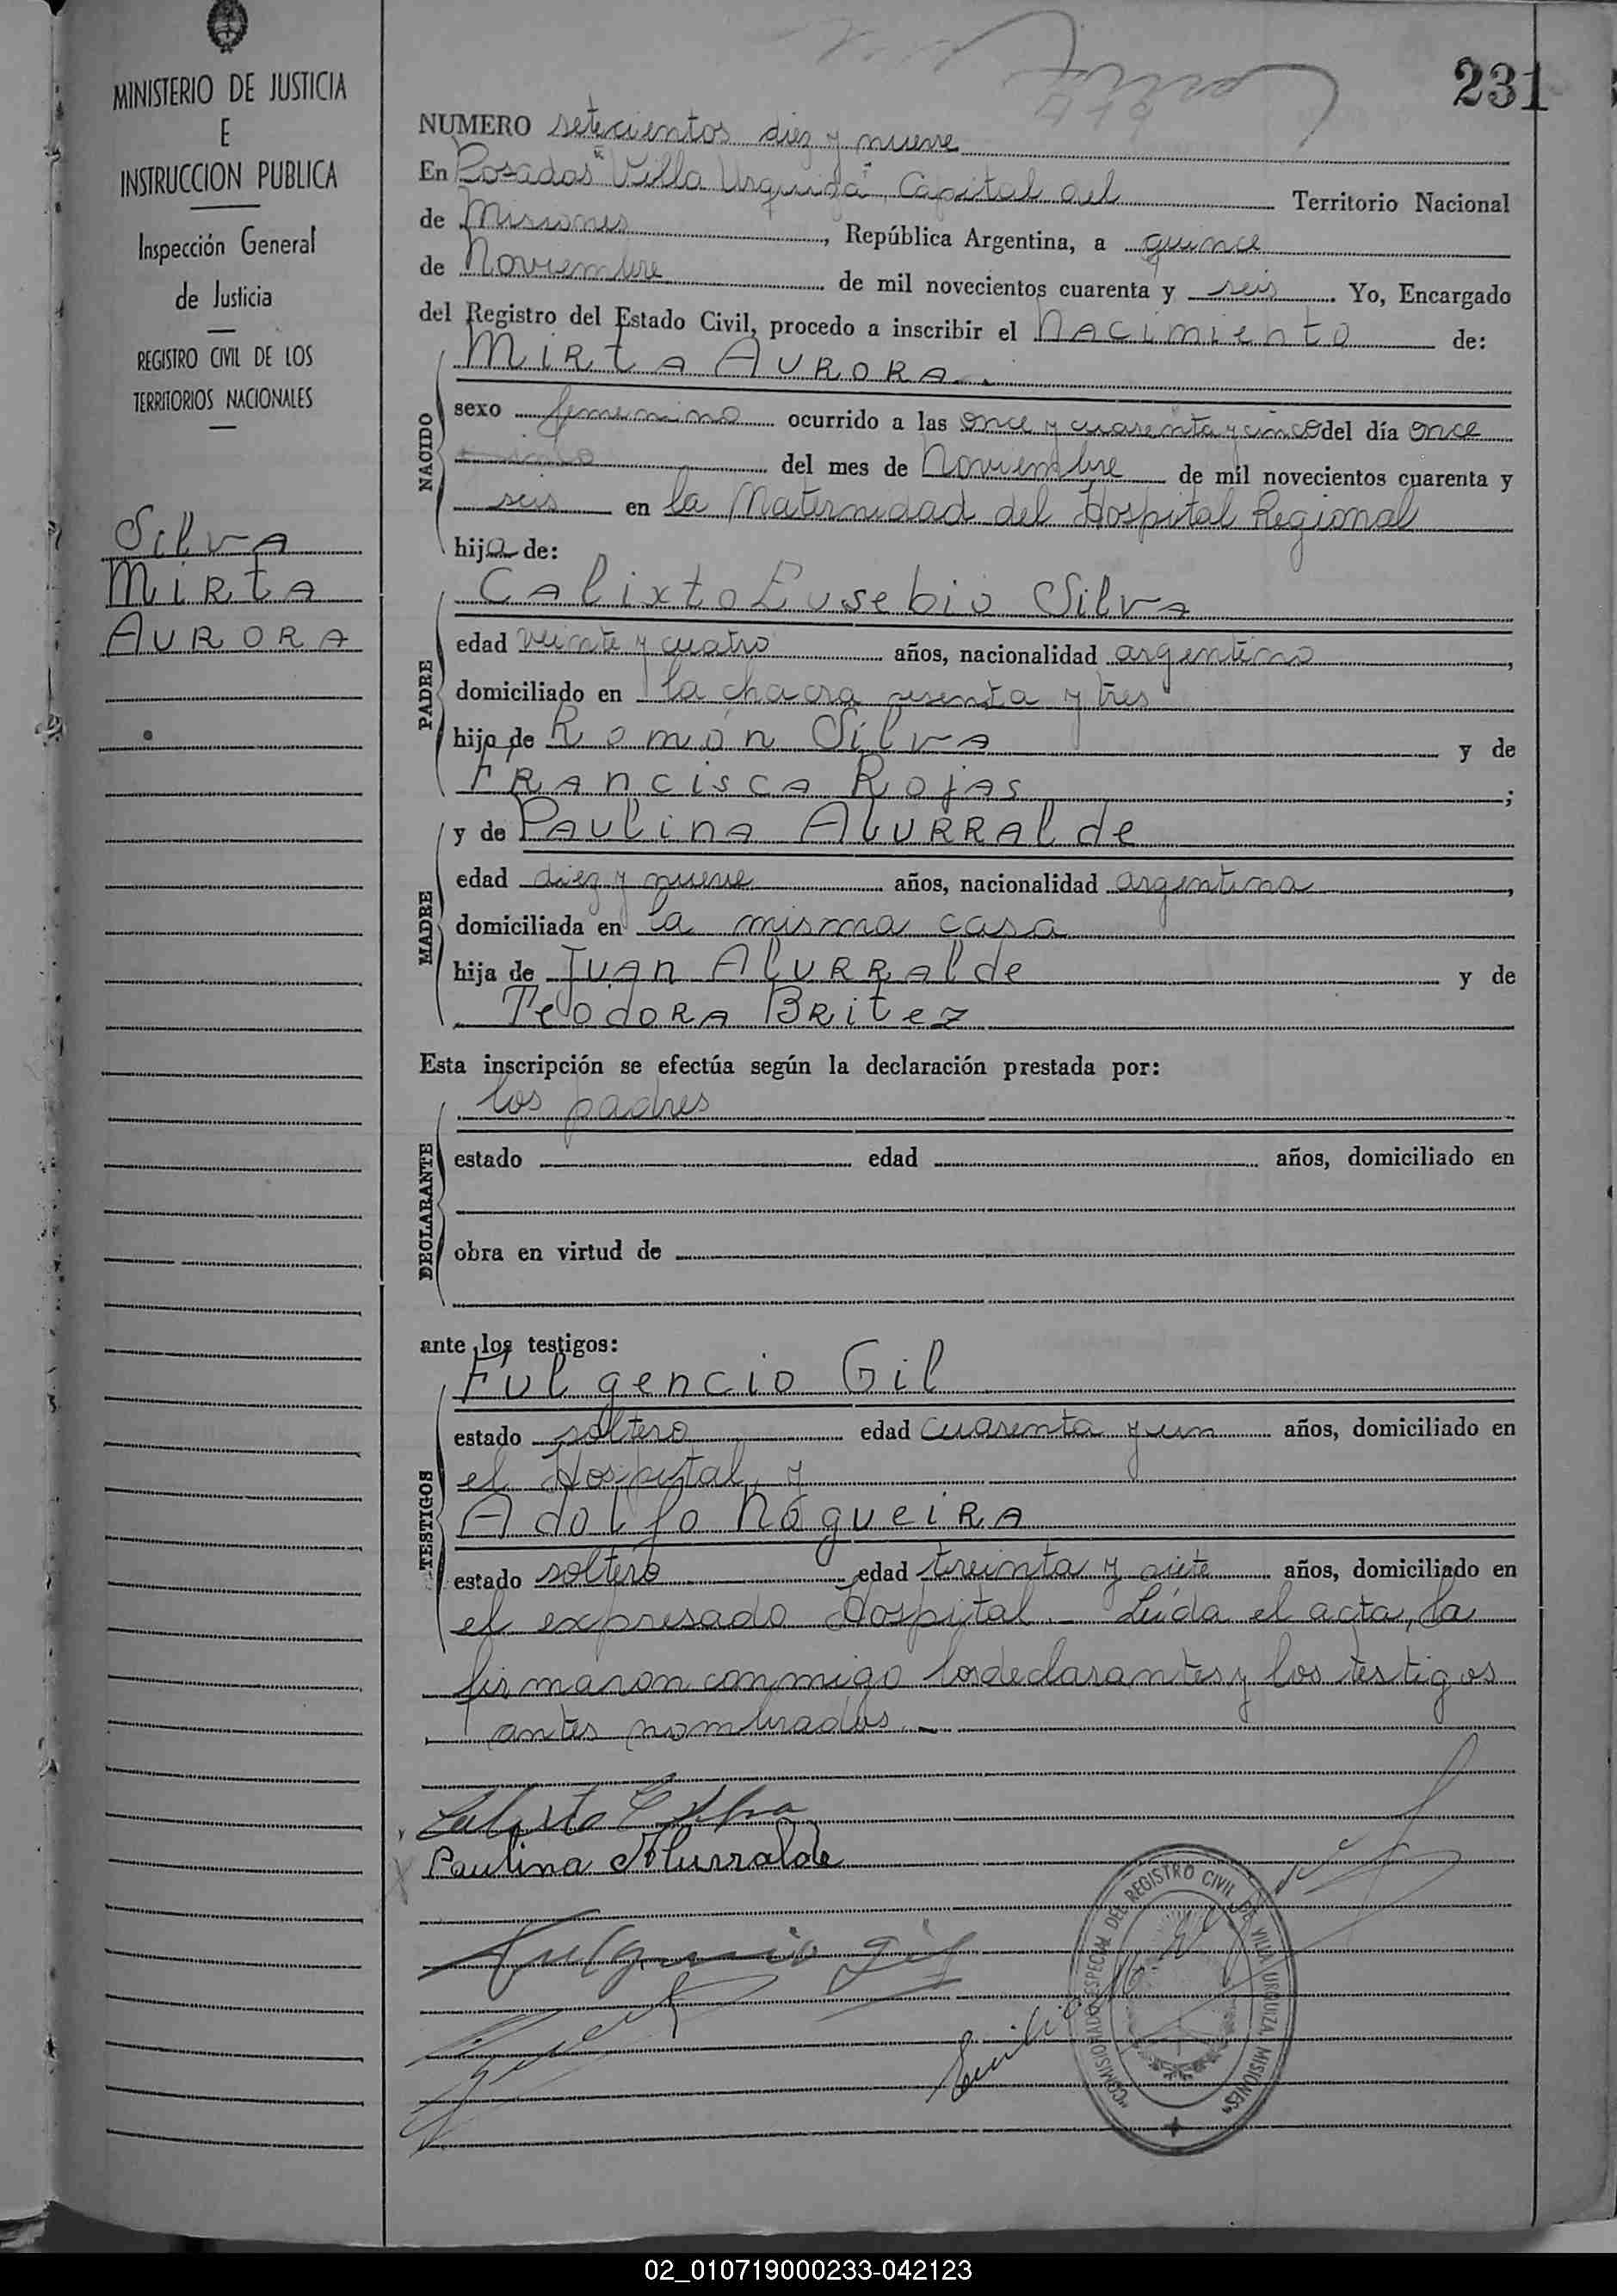 231
MINISTERIO DE JUSTICIA
E
INSTRUCCION PUBLICA
Inspección General
de Justicia
REGISTRO CIVIL DE LOS
TERRITORIOS NACIONALES
Silva
Mirta
Aurora
NUMERO setecientos diez y nueve
En Posadas "Villa Urquiza", Capital del Territorio Nacional
de Misiones, República Argentina, a quince
de Noviembre de mil novecientos cuarenta y seis. Yo, Encargado
del Registro del Estado Civil, procedo a inscribir el nacimiento de:
NACIDO
Mirta Aurora.
sexo femenino ocurrido a las once y cuarenta y cinco del día once
del mes de Noviembre de mil novecientos cuarenta y
seis en la Maternidad del Hospital Regional
hija de:
PADRE
Calixto Eusebio Silva
edad veinte y cuatro años, nacionalidad argentino,
domiciliado en la chacra sesenta y tres
hijo de Román Silva y de
Francisca Rojas;
MADRE
y de Paulina Alurralde
edad diez y nueve años, nacionalidad argentina,
domiciliada en la misma casa
hija de Juan Alurralde y de
Teodora Britez
Esta inscripción se efectúa según la declaración prestada por:
DECLARANTE
los padres
estado edad años, domiciliado en
obra en virtud de
ante los testigos:
TESTIGOS
Fulgencio Gil
estado soltero edad cuarenta y un años, domiciliado en
el Hospital, y
Adolfo Nogueira
estado soltero edad treinta y siete años, domiciliado en
el expresado Hospital.- Leída el acta, la
firmaron conmigo los declarantes y los testigos
antes nombrados.-
Calixto E Silva
Paulina Alurralde
Fulgencio Gil
"COMISIONADO ESPECIAL DEL REGISTRO CIVIL DE VILLA URQUIZA, MISIONES"
02_010719000233-042123